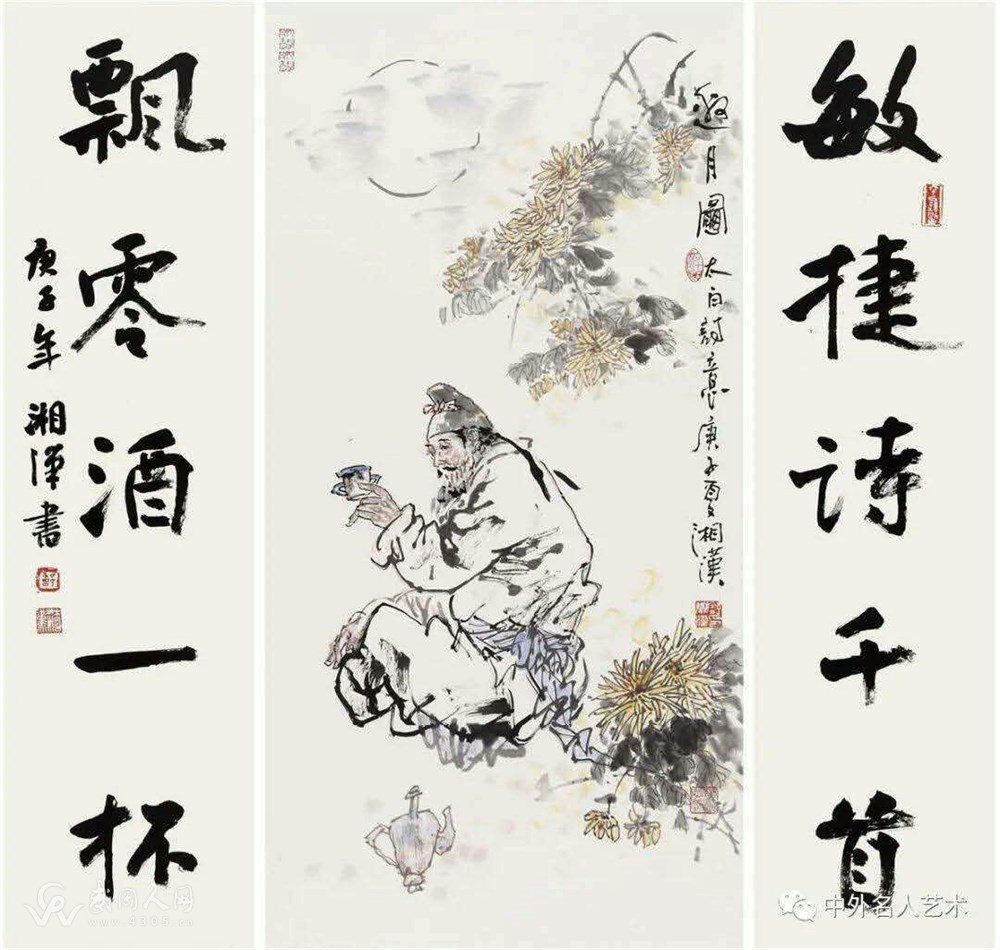 敏捷诗千首
邀月圖
太白诗意庚子夏湘漢
飄零酒一杯
庚子年 湘漢書
武冈人网
www.4305.cn
中外名人艺术